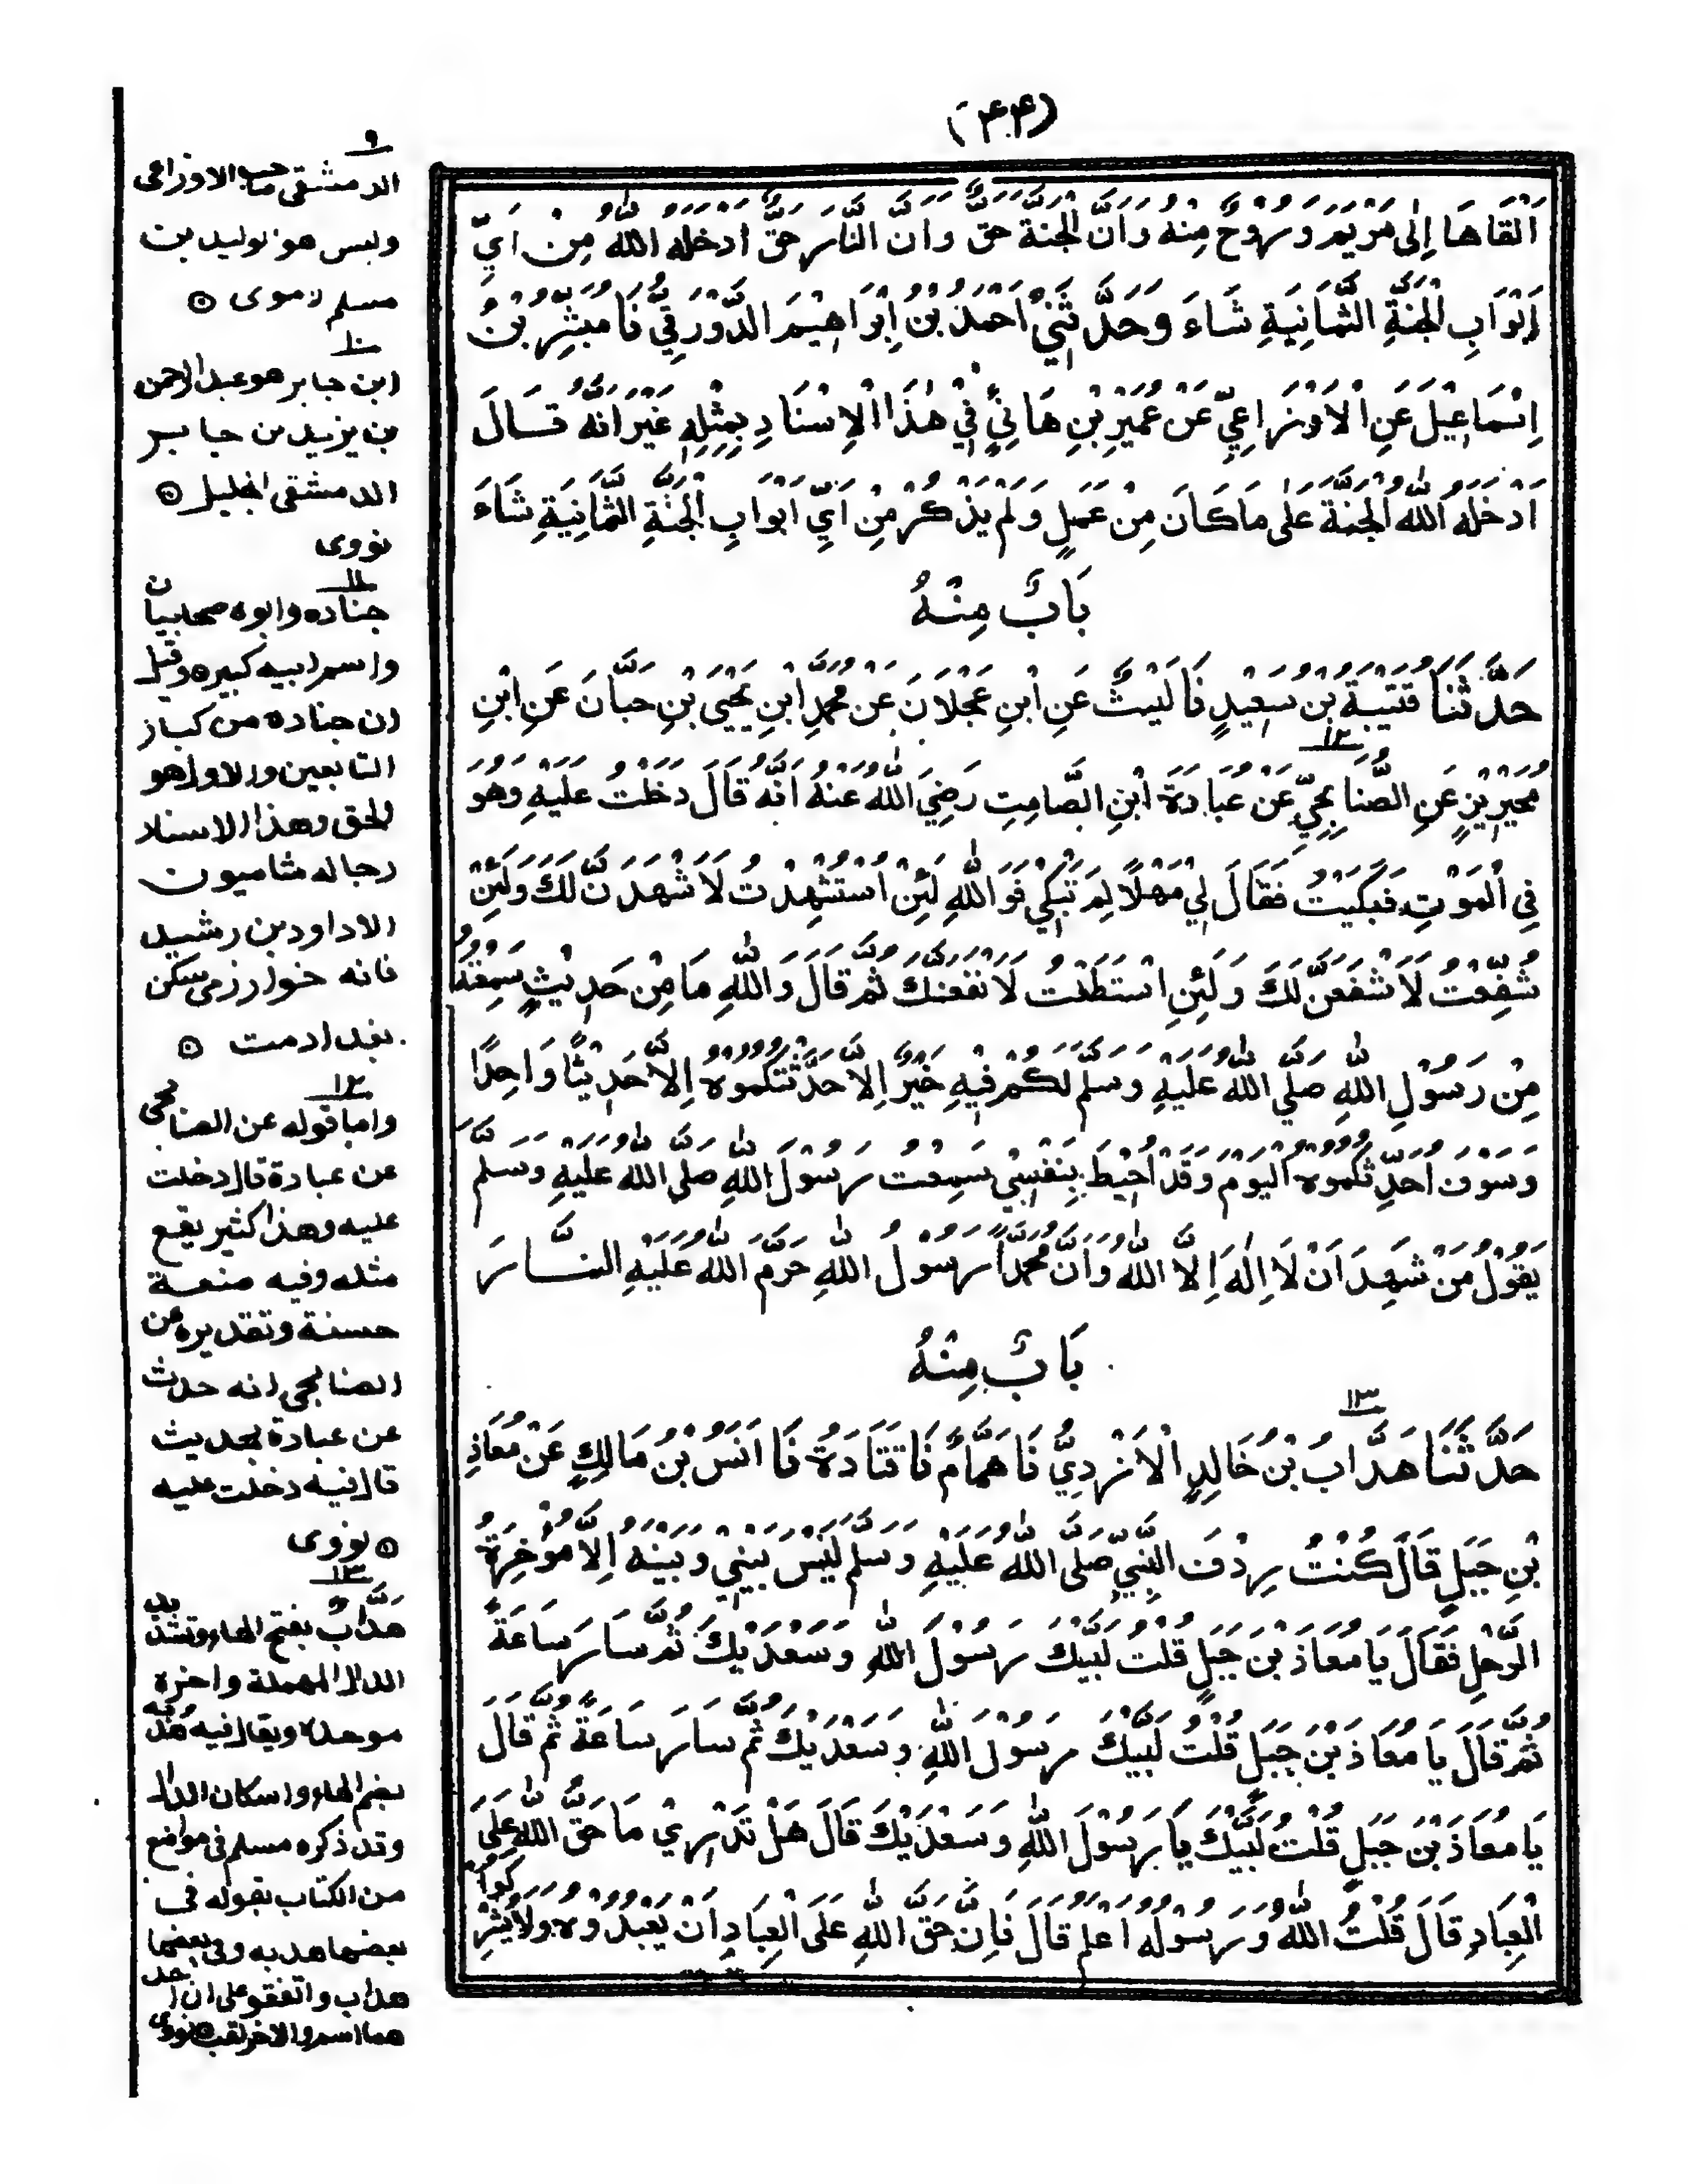 (۴۴)
اَلْقَاهَا اِلٰى مَرْيَمَ وَرُوْحٌ مِنْهُ وَاَنَّ الْجَنَّةَ حَقٌّ وَاَنَّ النَّارَ حَقٌّ اَدْخَلَهُ اللّٰهُ مِنْ اَيِّ
اَبْوَابِ الْجَنَّةِ الثَّمَانِيَةِ شَاءَ وَحَدَّثَنِيْ اَحْمَدُ بْنُ اِبْرَاهِيْمَ الدَّوْرَقِيُّ نَا مُبَشِّرُ بْنُ
اِسْمَاعِيْلَ عَنِ الْاَوْزَرَاعِيِّ عَنْ عُمَيْرِ بْنِ هَانِئٍ فِيْ هٰذَا الْاِسْنَادِ بِمِثْلِهِ غَيْرَ اَنَّهُ قَالَ
اَدْخَلَهُ اللّٰهُ الْجَنَّةَ عَلٰى مَا كَانَ مِنْ عَمَلٍ وَلَمْ يَذْكُرْ مِنْ اَيِّ اَبْوَابِ الْجَنَّةِ الثَّمَانِيَةِ شَاءَ
بَابٌ مِنْهُ
حَدَّثَنَا قُتَيْبَةُ بْنُ سَعِيْدٍ نَا لَيْثٌ عَنِ ابْنِ عَجْلَانَ عَنْ مُحَمَّدِ ابْنِ يَحْيَى بْنِ حَبَّانَ عَنِ ابْنِ
مُحَيْرِيْزٍ عَنِ الصُّنَابِحِيِّ عَنْ عُبَادَةَ ابْنِ الصَّامِتِ رَضِيَ اللّٰهُ عَنْهُ اَنَّهُ قَالَ دَخَلْتُ عَلَيْهِ وَهُوَ
فِي الْمَوْتِ فَبَكَيْتُ فَقَالَ لِيْ مَهْلًا لِمَ تَبْكِيْ فَوَاللّٰهِ لَئِنْ اسْتُشْهِدْتُ لَاَشْهَدَنَّ لَكَ وَلَئِنْ
شُفِّعْتُ لَاَشْفَعَنَّ لَكَ وَلَئِنِ اسْتَطَعْتُ لَاَنْفَعَنَّكَ ثُمَّ قَالَ وَاللّٰهِ مَا مِنْ حَدِيْثٍ سَمِعْتُهُ
مِنْ رَسُوْلِ اللّٰهِ صَلَّي اللّٰهُ عَلَيْهِ وَسَلَّمَ لَكُمْ فِيْهِ خَيْرٌ اِلَّا حَدَّثْتُكُمُوْهُ اِلَّا حَدِيْثًا وَاحِدًا
وَسَوْفَ اُحَدِّثُكُمُوْهُ الْيَوْمَ وَقَدْ اُحِيْطَ بِنَفْسِيْ سَمِعْتُ رَسُوْلَ اللّٰهِ صَلَّى اللّٰهُ عَلَيْهِ وَسَلَّمَ
يَقُوْلُ مَنْ شَهِدَ اَنْ لَا اِلٰهَ اِلَّا اللّٰهُ وَاَنَّ مُحَمَّدًا رَسُوْلُ اللّٰهِ حَرَّمَ اللّٰهُ عَلَيْهِ النَّارَ
بَابٌ مِنْهُ
حَدَّثَنَا هَدَّابُ بْنُ خَالِدِ الْاَزْدِيُّ نَا هَمَّامٌ نَا قَتَادَةُ نَا اَنَسُ بْنُ مَالِكٍ عَنْ مُعَاذِ
بْنِ جَبَلٍ قَالَ كُنْتُ رِدْفَ النَّبِيِّ صَلَّى اللّٰهُ عَلَيْهِ وَسَلَّمَ لَيْسَ بَيْنِيْ وَبَيْنَهُ اِلَّا مُؤْخِرَةُ
الرَّحْلِ فَقَالَ يَا مُعَاذَ بْنَ جَبَلٍ قُلْتُ لَبَّيْكَ رَسُوْلَ اللّٰهِ وَسَعْدَيْكَ ثُمَّ سَارَ سَاعَةً
ثُمَّ قَالَ يَا مُعَاذَ بْنَ جَبَلٍ قُلْتُ لَبَّيْكَ رَسُوْلَ اللّٰهِ وَسَعْدَيْكَ ثُمَّ سَارَ سَاعَةً ثُمَّ قَالَ
يَا مُعَاذَ بْنَ جَبَلٍ قُلْتُ لَبَّيْكَ يَا رَسُوْلَ اللّٰهِ وَسَعْدَيْكَ قَالَ هَلْ تَدْرِيْ مَا حَقُّ اللّٰهِ عَلَى
الْعِبَادِ قَالَ قُلْتُ اللّٰهُ وَرَسُوْلُهُ اَعْلَمُ قَالَ فَاِنَّ حَقَّ اللّٰهِ عَلَى الْعِبَادِ اَنْ يَعْبُدُوْهُ وَلَا يُشْرِكُوْا
۹
الدمشقى صاحب الاوزاعى
وليس هو الوليد بن
مسلم الاموى ۞
۱۰
ابن جابر هو عبد الرحمن
بن يزيد بن جابر
الدمشقى الجليل ۞
نووى
۱۱
جناده وابوه صحابيان
واسم ابيه كبير وقيل
ان جناده من كبار
التابعين والاول هو
الحق وهذا الاسناد
رجاله شاميون
الا داود بن رشيد
فانه خوارزمى سكن
بغداد مت ۞
۱۲
واما قوله عن الصنابحى
عن عبادة قال دخلت
عليه وهذا كثير يقع
مثله وفيه صنعة
حسنة وتقديره عن
الصنابحى انه حدث
عن عبادة بحديث
قال فيه دخلت عليه
۞ نووى
۱۳
هدّابٌ بفتح الهاء وتشديد
الدال المهملة واخره
موحدة ويقال فيه هُدْبَه
بضم الهاء واسكان الدال
وقد ذكره مسلم فى مواضع
من الكتاب بقوله فى
بعضها هدبه وفى بعضها
هداب واتفقو على ان احد
هما اسم والاخر لقب ۞ نووى